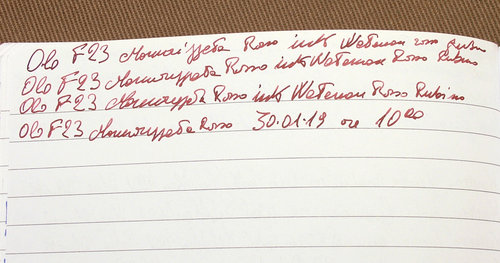 Olo F23 Rosso ink Waterman rosso Rubino
Olo F23 Rosso ink Waterman Rosso Rubino
Olo F23 Rosso ink Waterman Rosso Rubino
Olo F23 Rosso 30.01.19 ore 10 00